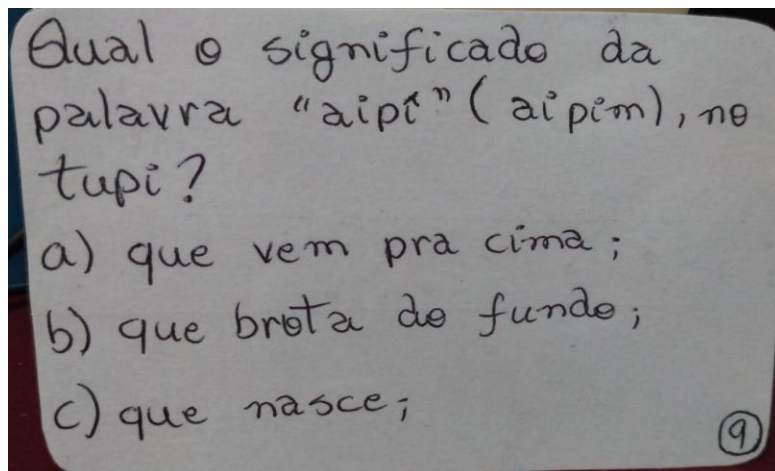 Qual o significado da
palavra "aipĩ" (aipim), no
tupi?
a) que vem pra cima;
b) que brota do fundo;
c) que nasce;
9